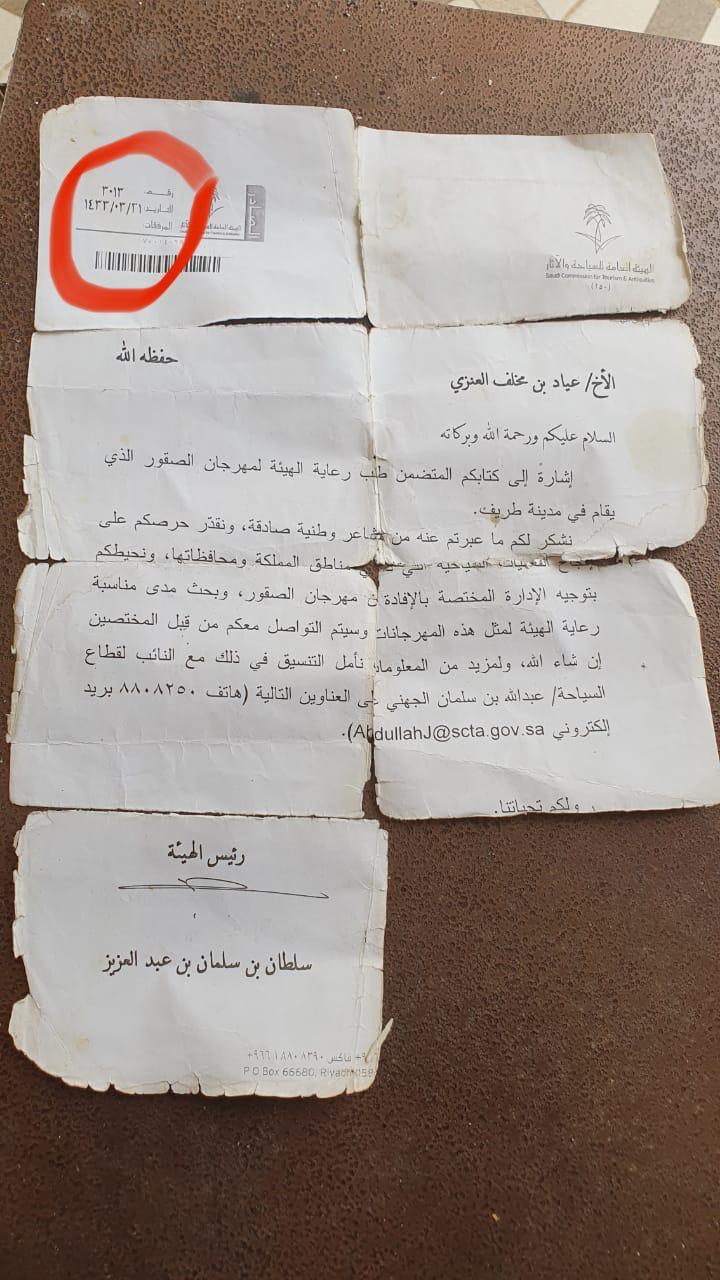 الهيئة العامة للسياحة والآثار
Saudi Commission for Tourism & Antiquities
(٢٥٠)
الصادر
رقم: ٣٠١٣
التاريخ: ١٤٣٣/٠٣/٢١
المرفقات:
الأخ/ عياد بن مخلف العنزي حفظه الله
السلام عليكم ورحمة الله وبركاته
إشارةً إلى كتابكم المتضمن طلب رعاية الهيئة لمهرجان الصقور الذي
يقام في مدينة طريف.
نشكر لكم ما عبرتم عنه من مشاعر وطنية صادقة، ونقدّر حرصكم على
الفعاليات السياحية مناطق المملكة ومحافظاتها، ونحيطكم
بتوجيه الإدارة المختصة بالإفادة مهرجان الصقور، وبحث مدى مناسبة
رعاية الهيئة لمثل هذه المهرجانات وسيتم التواصل معكم من قِبل المختصين
إن شاء الله، ولمزيد من المعلومات نأمل التنسيق في ذلك مع النائب لقطاع
السياحة/ عبدالله بن سلمان الجهني على العناوين التالية (هاتف ٨٨٠٨٢٥٠ بريد
إلكتروني AbdullahJ@scta.gov.sa).
ولكم تحياتنا.
رئيس الهيئة
سلطان بن سلمان بن عبد العزيز
فاكس ٨٨٠٨٣٩٠ ١ ٩٦٦+
P O Box 66680, Riyadh